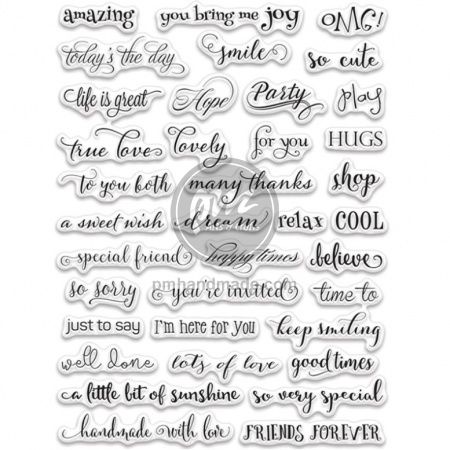 amazing you bring me joy OMG!
today's the day smile so cute
life is great Hope Party play
true love lovely for you HUGS
to you both many thanks shop
a sweet wish dream relax COOL
special friend happy times believe
pmhandmade.com
so sorry you're invited time to
just to say I'm here for you keep smiling
well done lots of love good times
a little bit of sunshine so very special
handmade with love FRIENDS FOREVER